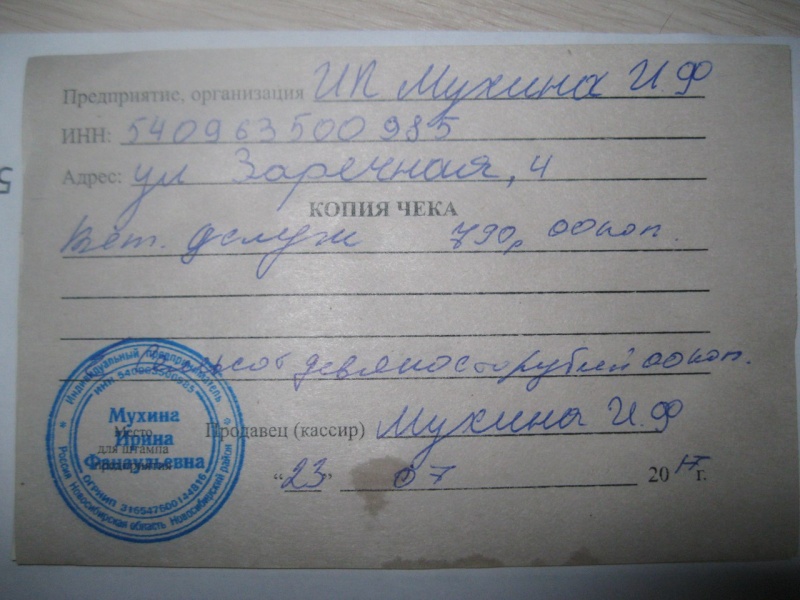 Предприятие, организация ИП Мухина И.Ф
ИНН: 540963500985
Адрес: ул Заречная, 4
КОПИЯ ЧЕКА
Вет. услуж 790, 00 коп.
девяносто рублей 00 коп.
Продавец (кассир) Мухина И.Ф
"23" 07 2017 г.
Место для штампа предприятия
Индивидуальный предприниматель
ИНН 540963500985
Мухина
Ирина
Фанаульевна
ОГРНИП 316547600144816
Россия Новосибирская область Новосибирский район
5